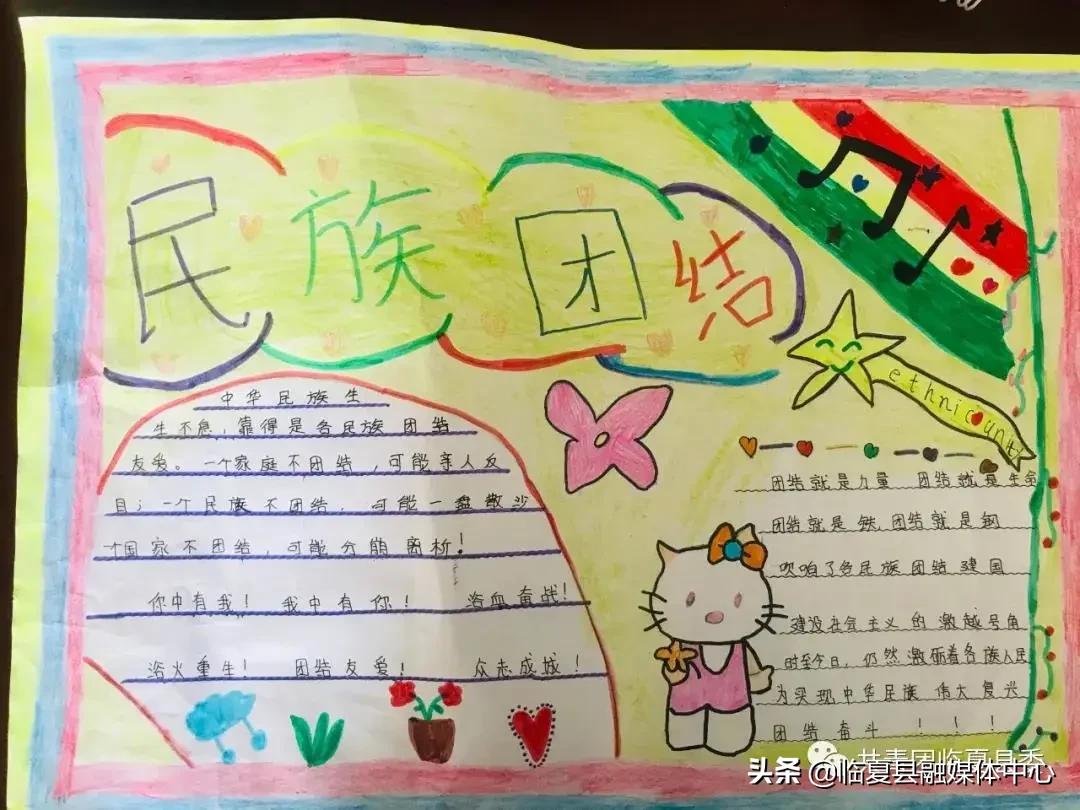 民族团结
ethnic unity
中华民族生
生不息，靠得是各民族团结
友爱。一个家庭不团结，可能亲人反
目；一个民族不团结，可能一盘散沙
个国家不团结，可能分崩离析！
你中有我！ 我中有你！ 浴血奋战！
浴火重生！ 团结友爱！ 众志成城！
团结就是力量 团结就是生命
团结就是铁，团结就是钢
吹响了各民族团结建国
建设社会主义的激越号角
时至今日，仍然激励着各族人民
为实现中华民族伟大复兴
团结奋斗！！！
共青团临夏县委
头条 @临夏县融媒体中心